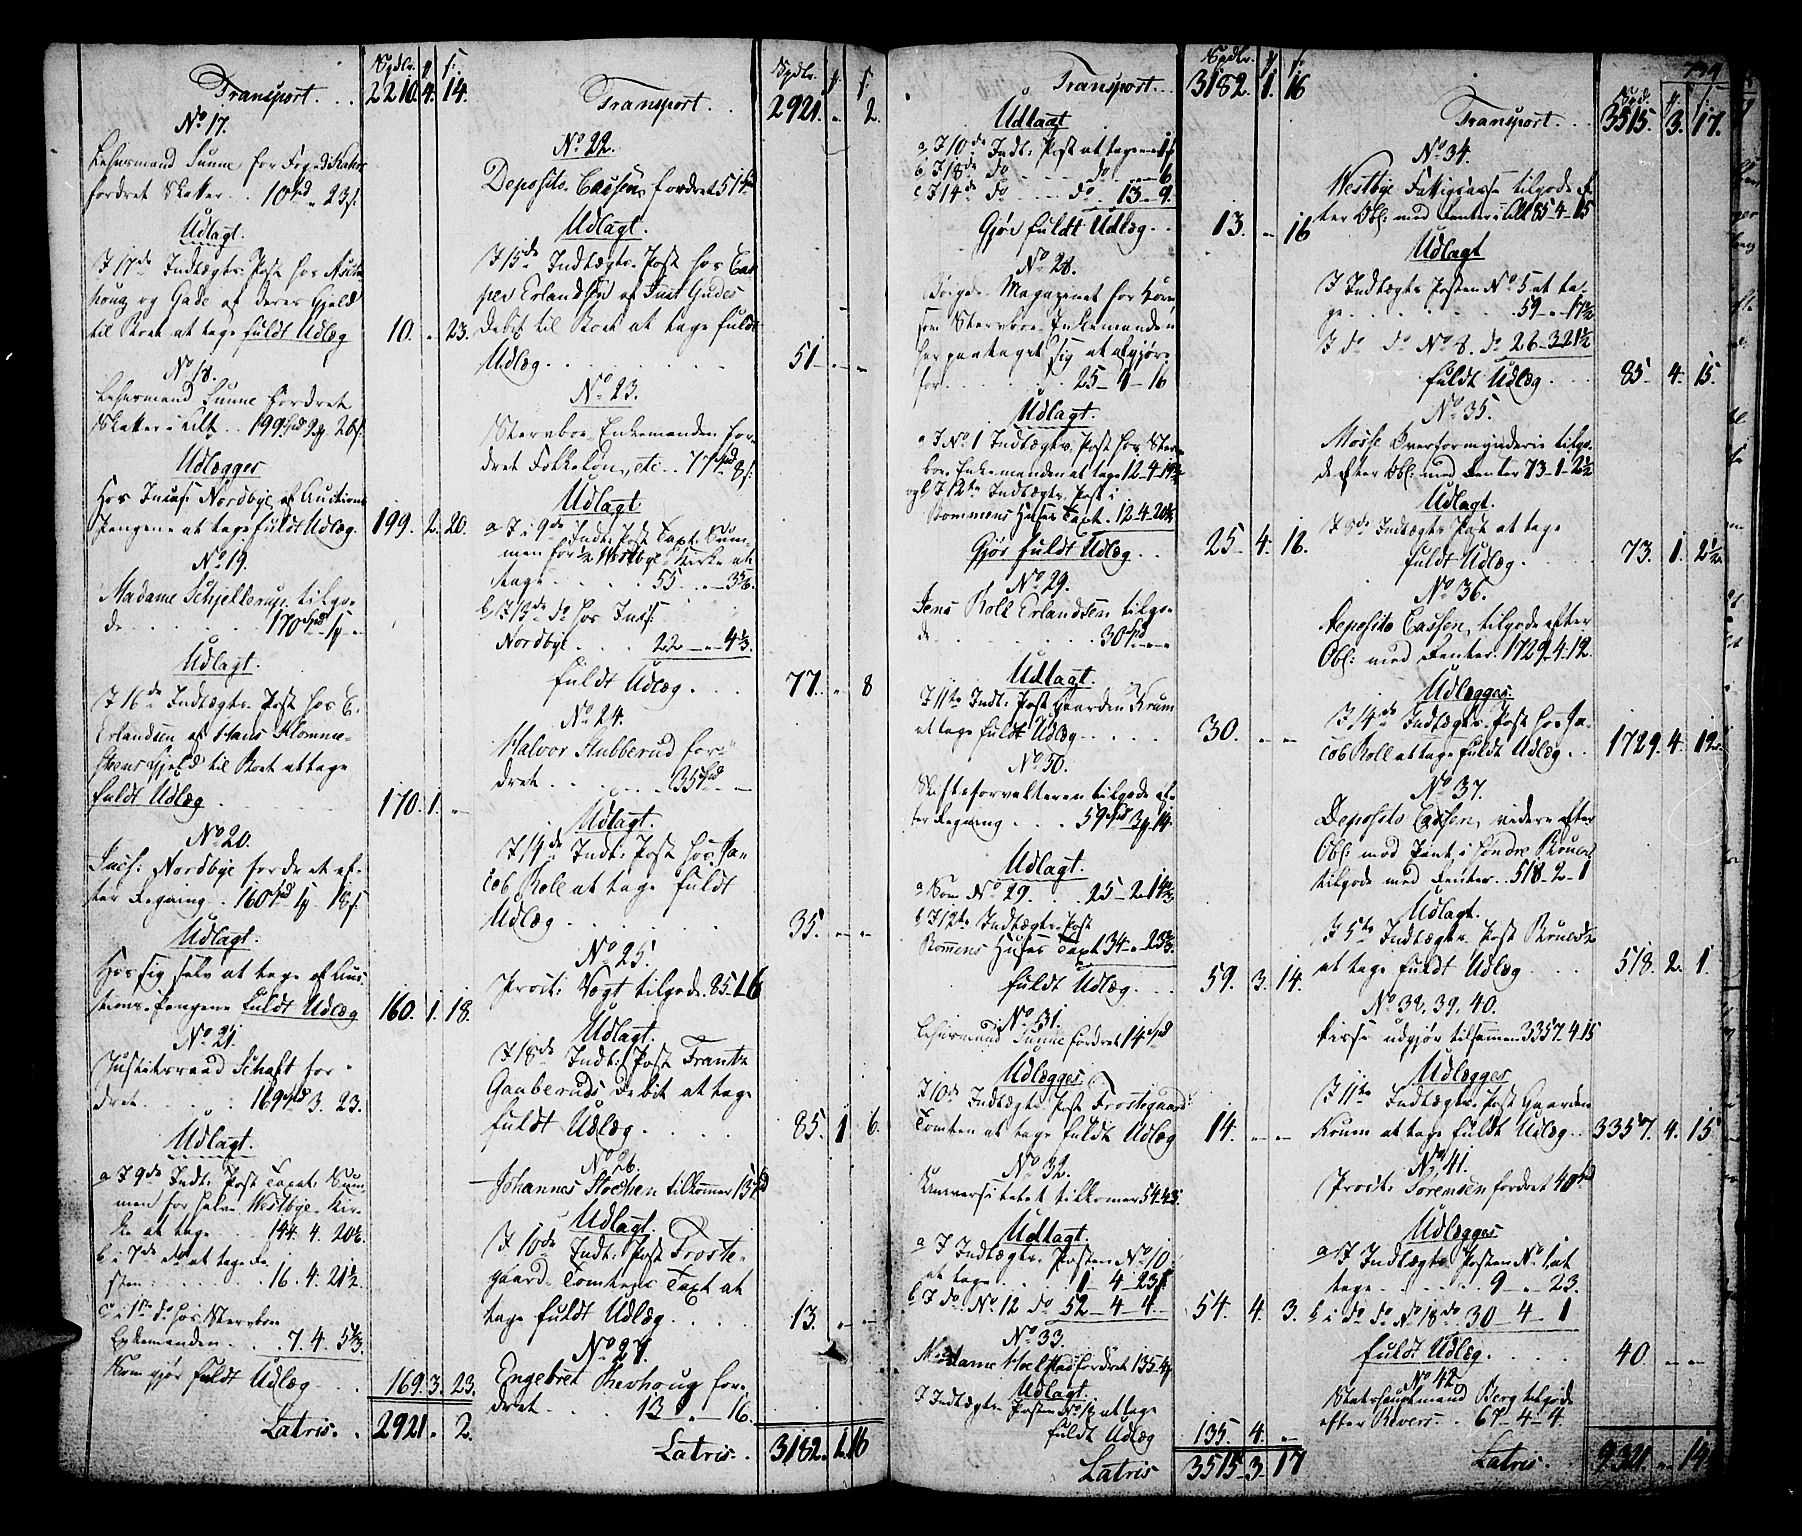 Spdlr. y s:
Transport. . . 2210. 4. 14.
No 17.
Lehnsmand Sunne for
fordret Skatter . . 10 spd „ 23 s.
Udlagt.
I 17de Indtægts Post hos
houg og Gade af deres Gjeld
til Boet at tage fuldt Udlæg 10. „ 23.
No 18.
Lehnsmand Sunne fordret
Skatter i Alt . . 199 spd 2 y 20 s.
Udlægges
Hos Jacs: Nordbye af Auctions
Pengene at tage fuldt Udlæg. 199. 2. 20.
No 19.
Madame Schjellerup tilgo-
de . . . . . 170 spd 1 y „
Udlagt.
I 16de Indtægts Post hos E.
Erlandsen af Hans Klomme-
stens Gjeld til Boet at tage
fuldt Udlæg . . . 170. 1. „
No 20.
Jacs: Nordbye fordret ef-
ter Regning . 160 spd 1 y 18 s.
Udlagt.
Hos sig selv at tage af Auc-
tions-Pengene fuldt Udlæg 160. 1. 18.
No 21.
Justitsraad Schaft for-
dret . . . . 169 spd 3. 23.
Udlagt.
a I 9de Indt: Post Taxt: Sum-
men for halve Westbye-Kir-
ke at tage . . . 144. 4. 20½.
b i 7de do at tage Re-
sten . . . . . 16. 4. 21½.
c i 1ste do hos Stervboe
Enkemanden . . 7. 4. 5⅓.
Som gjør fuldt Udlæg . . . 169. 3. 23.
Latris. . . 2921. „ 2.
Spdlr. y. s.
Transport. . . 2921. „ 2.
No 22.
Deposito-Cassen fordret 51 spd
Udlagt.
I 15de Indtægts Post hos Cas-
per Erlandsen af Just Gudes
Debet til Boet at tage fuldt
Udlæg . . . . . 51 - „ - „
No 23.
Stervboe Enkemanden for-
dret Følkeløn etc. . 77 spd „ 8 s.
Udlagt
a I i 9de Indt: Post Taxt: Sum-
men for ½ Westbye-Kirke at
tage . . . . . 55. „ 3⅔.
b I 13de do hos Jacs:
Nordbye . . . . 22 — „ 4⅓.
fuldt Udlæg . . . 77. „ 8
No 24.
Halvor Stubberud for-
dret . . . . . 35 spd „ - „
Udlagt.
I 14de Indt: Post hos Ja-
cob Roll at tage fuldt
Udlæg . . . . . 35. „ - „
No 25.
Procr: Vogt tilgode. 85-1-6
Udlagt.
I 18de Indt: Post Frantz
Gauberuds Debit at tage
fuldt Udlæg . . . . 85. 1 6.
No 26.
Johannes Stochen tilkommer 13 spd
Udlagt.
I 10de Indt: Post Froste-
gaards Tomtens Taxt at
tage fuldt Udlæg . . . . 13. „ - „
No 27.
Engebret Revhoug for-
dret . . . . 13 „ — 16.
Latris. . 3182. 1. 16
Spdlr. y s:
Transport. . . 3182. 1. 16
Udlagt
a I 10de Indt: Post at tage „ 1
b I 18de do . . . do . . „ 6.
c I 14de do . . . do. 13 „ 9.
Gjør fuldt Udlæg . . 13. „ 16
No 28.
Magazinet for Korn
som Stervboe Enkemanden
har paataget sig at afgjøre
for . . . . . . 25 - 4 - 16
Udlagt.
a I No 1 Indtægts Post hos Sterv-
boe Enkemanden at tage 12-4-19½
og b I 12te Indtægts Post i
Rommens Huses Taxt. 12-4-20½
Gjør fuldt Udlæg . . 25. 4. 16.
No 29.
Jens Roll Erlandsen tilgo-
de . . . . . . 30 spd „ „
Udlagt.
I 11te Indt: Post Gaarden Krum
at tage fuldt Udlæg . . . . 30. „ - „
No 30.
Skifteforvalteren tilgode ef-
ter Regning . . . 59 spd 3 y 14.
Udlagt.
a Som No 29. . . 25 - 2 - 14⅔
b I 12te Indtægts Post
Rommens Huses Taxt 34 „ 23⅓.
fuldt Udlæg . . . 59. 3. 14.
No 31.
Lehnsmand Sunne fordret 14 spd
Udlægges
I 10de Indtægts Post Frostegaards
Tomten at tage fuldt Udlæg 14. „ - „
No 32.
Universitetet tilkommer 54-4-3.
Udlagt.
a I Indtægts Posten No 10
at tage . . . . 1 - 4 - 23
b I do No 12 do 52 - 4 - 4 - 54. 4. 3.
No 33.
Madame Hoelstad fordret 135-4 y
Udlagt.
I Indtægts Posten No 18 at tage
fuldt Udlæg 135. 4. „
Latris 3515. 3. 17
744
Spd. y. s.
Transport. . . 3515. 3. 17.
No 34.
Westbye Fattigcasse tilgode ef-
ter Obl: med Renter i Alt 85-4-15
Udlagt
I Indtægts Posten No 5 at ta-
ge . . . . . . 59 „ 17½
I do do No 8. do 26 - 3 21½
fuldt Udlæg . . . 85. 4. 15.
No 35.
Mosse Overformynderie tilgo-
de efter Obl: med Renter 73-1-2½
Udlagt.
I 8de Indtægts Post at tage
fuldt Udlæg . . . 73. 1. 2½.
No 36.
Deposito Cassen, tilgode efter
Obl: med Renter. 1729-4-12.
Udlægges.
I 14de Indtægts Post hos Ja-
cob Roll at tage fuldt Udlæg . . 1729. 4. 12.
No 37.
Deposito Cassen, videre efter
Obl: med Pant i søndre Krueds
tilgode med Renter . . 518-2-1
Udlagt.
I 5te Indtægts Post Krueds
at tage fuldt Udlæg . . . 518. 2. 1.
No 38, 39, 40.
Disse udgjør tilsamen 3357-4-15
Udlægges
I 11te Indtægts Post Gaarden
Krum at tage fuldt Udlæg . . 3357. 4. 15
No 41.
Procr: Sørensen fordret 40 spd
Udlægges
a I Indtægts Posten No 1. at
tage . . . . . 9 — „ 23.
b i do do No 18 do 30 - 4 - 1
fuldt Udlæg . . . 40 „ - „
No 42.
Berg tilgode
efter Revers . . 67-4-4.
Latris. . . 9321. „ 19.